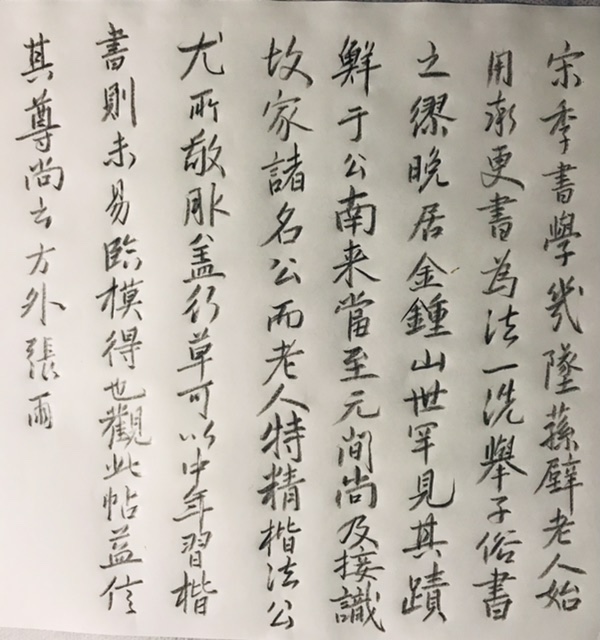 宋季書學幾墜蓀壁老人始
用承更書為法一洗舉子俗書
之繆晚居金鍾山世罕見其蹟
鮮于公南来當至元間尚及接識
故家諸名公而老人特精楷法公
尤所敬服盖行草可以中年習楷
書則未易臨模得也觀此帖益信
其尊尚云方外張雨